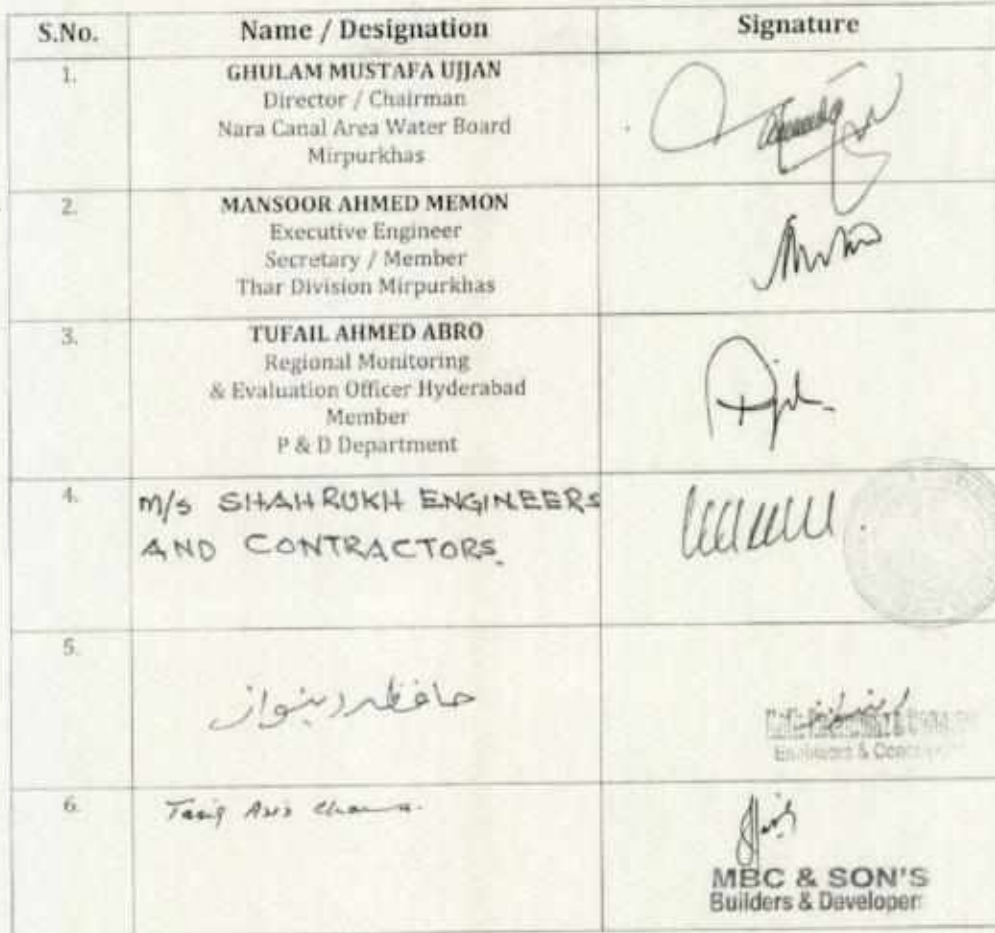 S.No. Name / Designation Signature
1. GHULAM MUSTAFA UJJAN
Director / Chairman
Nara Canal Area Water Board
Mirpurkhas
2. MANSOOR AHMED MEMON
Executive Engineer
Secretary / Member
Thar Division Mirpurkhas
3. TUFAIL AHMED ABRO
Regional Monitoring
& Evaluation Officer Hyderabad
Member
P & D Department
4. M/s SHAHRUKH ENGINEERS
AND CONTRACTORS.
5. حافظ
Engineers &
6. Tariq Aziz
MBC & SON'S
Builders & Developer